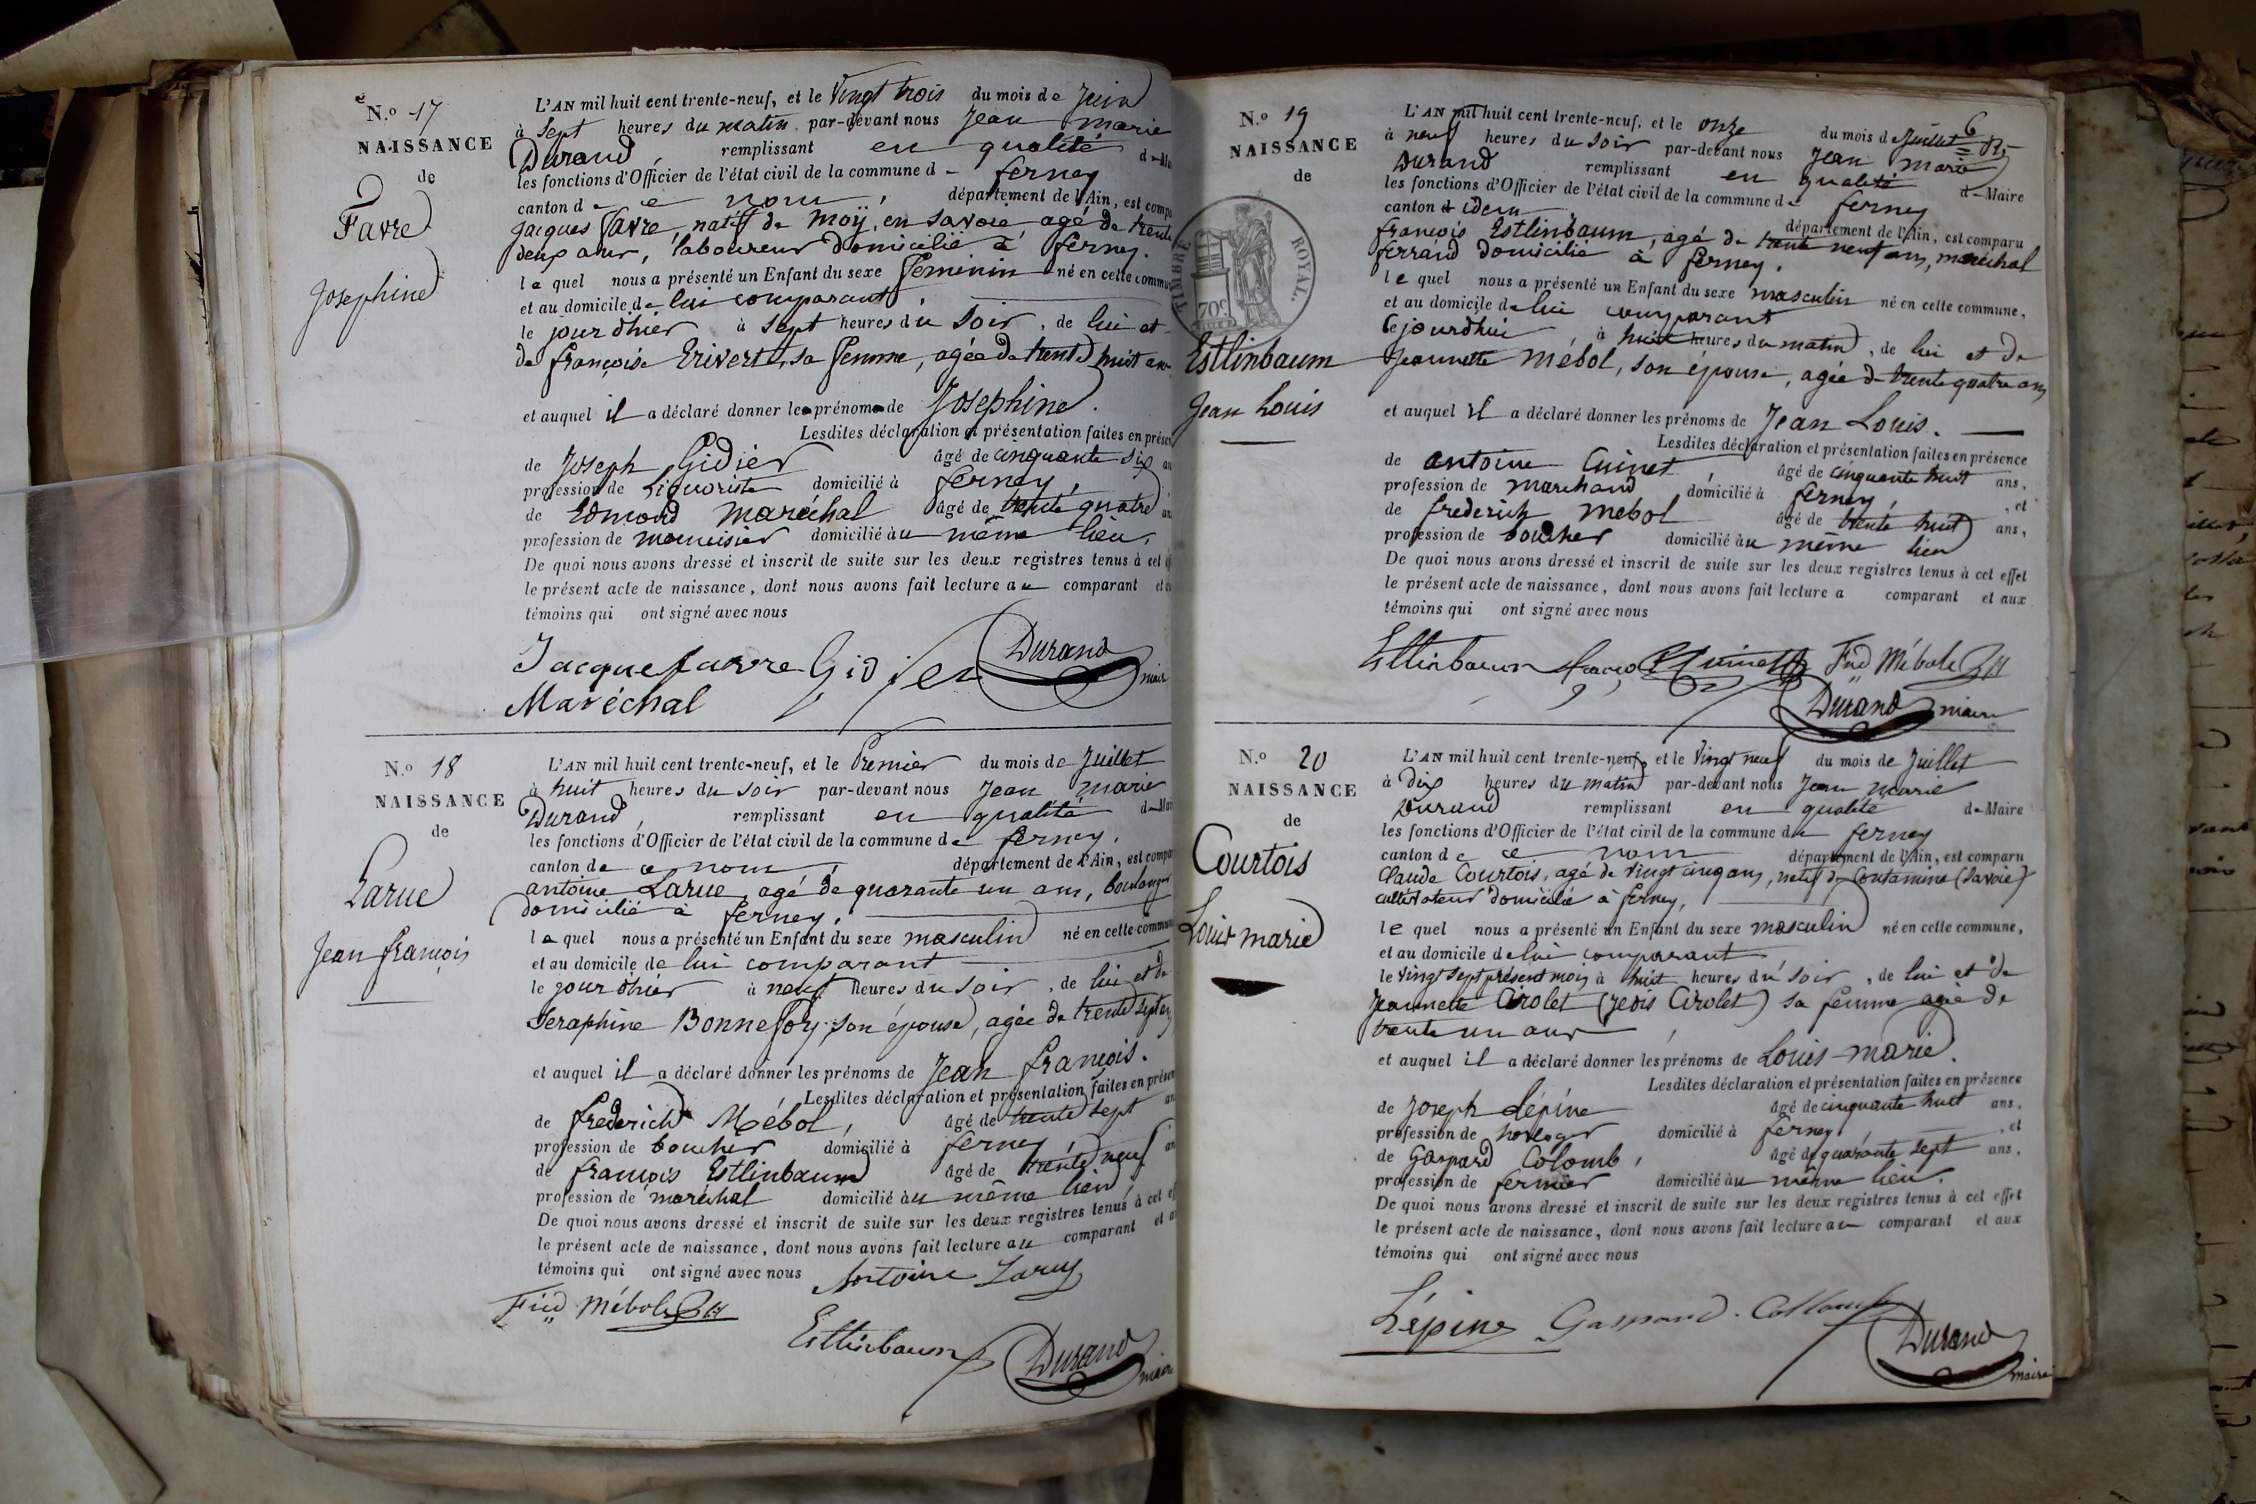 N.o 17
NAISSANCE
de
Favre
Josephine
L'AN mil huit cent trente-neuf, et le Vingt trois du mois de Juin
à sept heures du matin par-devant nous Jean marie
Durand, remplissant en qualité de Mai
les fonctions d'Officier de l'état civil de la commune de ferney
canton de ce nom, département de l'Ain, est compa
Jacques favre, natif de moÿ, en savoie agé de trente
deux ans, laboureur domicilié à ferney.
le quel nous a présenté un Enfant du sexe feminin né en cette commun
et au domicile de lui comparant
le jour d'hier à sept heures du soir, de lui et
de françoise Erivert, sa femme, agée de trente huit ans
et auquel il a déclaré donner le prénom de Josephine.
Lesdites déclaration et présentation faites en présen
de Joseph Gidier âgé de cinquante six an
profession de Liquoriste domicilié à ferney,
de Edmond maréchal âgé de trente quatre an
profession de menuisier domicilié au même lieu,
De quoi nous avons dressé et inscrit de suite sur les deux registres tenus à cet ef
le présent acte de naissance, dont nous avons fait lecture au comparant et au
témoins qui ont signé avec nous
Jacque favre Gidier Durand maire
Maréchal
N.o 18
NAISSANCE
de
Larue
Jean françois
L'AN mil huit cent trente-neuf, et le Premier du mois de Juillet
à huit heures du soir par-devant nous Jean marie
Durand, remplissant en qualité de Mai
les fonctions d'Officier de l'état civil de la commune de ferney,
canton de ce nom, département de l'Ain, est compa
antoine Larue, agé de quarante un ans, boulanger
domicilié à ferney,
le quel nous a présenté un Enfant du sexe masculin né en cette commun
et au domicile de lui comparant
le jour d'hier à neuf heures du soir, de lui et de
Seraphine Bonnefoy, son épouse, agée de trente sept ans
et auquel il a déclaré donner les prénoms de Jean françois.
Lesdites déclaration et présentation faites en présen
de frederich Mébol, âgé de trente sept an
profession de boucher domicilié à ferney,
de françois Estlinbaum âgé de trente neuf an
profession de maréchal domicilié au même lieu,
De quoi nous avons dressé et inscrit de suite sur les deux registres tenus à cet ef
le présent acte de naissance, dont nous avons fait lecture au comparant et au
témoins qui ont signé avec nous Antoine Larue
Fred Mébole
Estlinbaum Durand maire
6
N.o 19
NAISSANCE
de
TIMBRE ROYAL.
70c
Estlinbaum
Jean Louis
L'AN mil huit cent trente-neuf, et le onze du mois de Juillet
à neuf heures du soir par-devant nous Jean marie
Durand remplissant en qualité de Maire
les fonctions d'Officier de l'état civil de la commune de ferney
canton d idem département de l'Ain, est comparu
françois Estlinbaum, agé de trente neuf ans, maréchal
ferrand domicilié à ferney.
le quel nous a présenté un Enfant du sexe masculin né en cette commune,
et au domicile de lui comparant
cejourdhui à huit heures du matin, de lui et de
Jeannette mébol, son épouse, agée de trente quatre ans
et auquel il a déclaré donner les prénoms de Jean Louis.
Lesdites déclaration et présentation faites en présence
de antoine Cuinet, âgé de cinquante huit ans,
profession de marchand domicilié à ferney, , et
de frederich mebol âgé de trente huit ans,
profession de boucher domicilié au même lieu
De quoi nous avons dressé et inscrit de suite sur les deux registres tenus à cet effet
le présent acte de naissance, dont nous avons fait lecture a comparant et aux
témoins qui ont signé avec nous
Estlinbaum Cuinet Fred Mébole
Durand maire
N.o 20
NAISSANCE
de
Courtois
Louis marie
L'AN mil huit cent trente-neuf, et le Vingt neuf du mois de Juillet
à dix heures du matin par-devant nous Jean marie
Durand remplissant en qualité de Maire
les fonctions d'Officier de l'état civil de la commune de ferney
canton de ce nom département de l'Ain, est comparu
Claude Courtois, agé de Vingt cinq ans, natif de Contamine (Savoie)
cultivateur domicilié à ferney,
le quel nous a présenté un Enfant du sexe masculin né en cette commune,
et au domicile de lui comparant
le vingt sept présent mois à huit heures du soir, de lui et de
Jeannette Cirolet (Jedis Cirolet) sa femme agée de
trente un ans
et auquel il a déclaré donner les prénoms de Louis-marie.
Lesdites déclaration et présentation faites en présence
de Joseph Lépine âgé de cinquante huit ans,
profession de horloger domicilié à ferney, , et
de Gaspard Colomb, âgé de quarante sept ans,
profession de fermier domicilié au même lieu.
De quoi nous avons dressé et inscrit de suite sur les deux registres tenus à cet effet
le présent acte de naissance, dont nous avons fait lecture au comparant et aux
témoins qui ont signé avec nous
Lépine Gaspard Collomb
Durand
maire